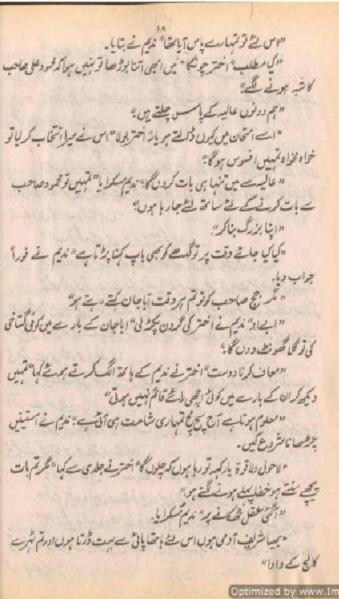 ۱۸
"اس لئے تو تمہارے پاس آیا تھا" ندیم نے بتایا۔
"کیا مطلب" اختر چونکا "میں ابھی اتنا بوڑھا تو نہیں ہوا کہ محمود علی صاحب
کا شبہ ہونے لگے"
"ہم دونوں عالیہ کے پاس چلتے ہیں"
"اسے امتحان میں کیوں ڈالتے ہو یار" اختر بولا "اس نے میرا انتخاب کر لیا تو
خواہ مخواہ تمہیں افسوس ہوگا"
"عالیہ سے میں تنہا ہی بات کروں گا" ندیم مسکرایا "تمہیں تو محمود صاحب
سے بات کرنے کے لئے ساتھ لئے جا رہا ہوں"
"اپنا بزرگ بنا کر"
"کیا کیا جائے وقت پر تو گدھے کو بھی باپ کہنا پڑتا ہے" ندیم نے فوراً
جواب دیا۔
"مگر جج صاحب کو تو تم ہر وقت اباجان کہتے رہتے ہو"
"ابے او" ندیم نے اختر کی گردن پکڑ لی "اباجان کے بارے میں کوئی گستاخی
کی تو گلا گھونٹ دوں گا"
"معاف کرنا دوست" اختر نے ندیم کے ہاتھ الگ کرتے ہوئے کہا "تمہیں
دیکھ کر ان کے بارے میں کوئی اچھی رائے قائم نہیں ہوتی"
"معلوم ہوتا ہے آج سچ مچ تمہاری شامت ہی آئی ہے" ندیم نے آستینیں
چڑھانا شروع کیں۔
"لاحول ولا قوۃ یار کہہ تو رہا ہوں کہ چلوں گا" اختر نے جلدی سے کہا "مگر تم بات
پیچھے سنتے ہو خفا پہلے ہونے لگتے ہو"
"آگئی عقل ٹھکانے پر" ندیم مسکرایا۔
"بھیا شریف آدمی ہوں اس لئے ہاتھا پائی سے بہت ڈرتا ہوں اور تم ٹھہرے
کالج کے دادا"
Optimized by www.Im